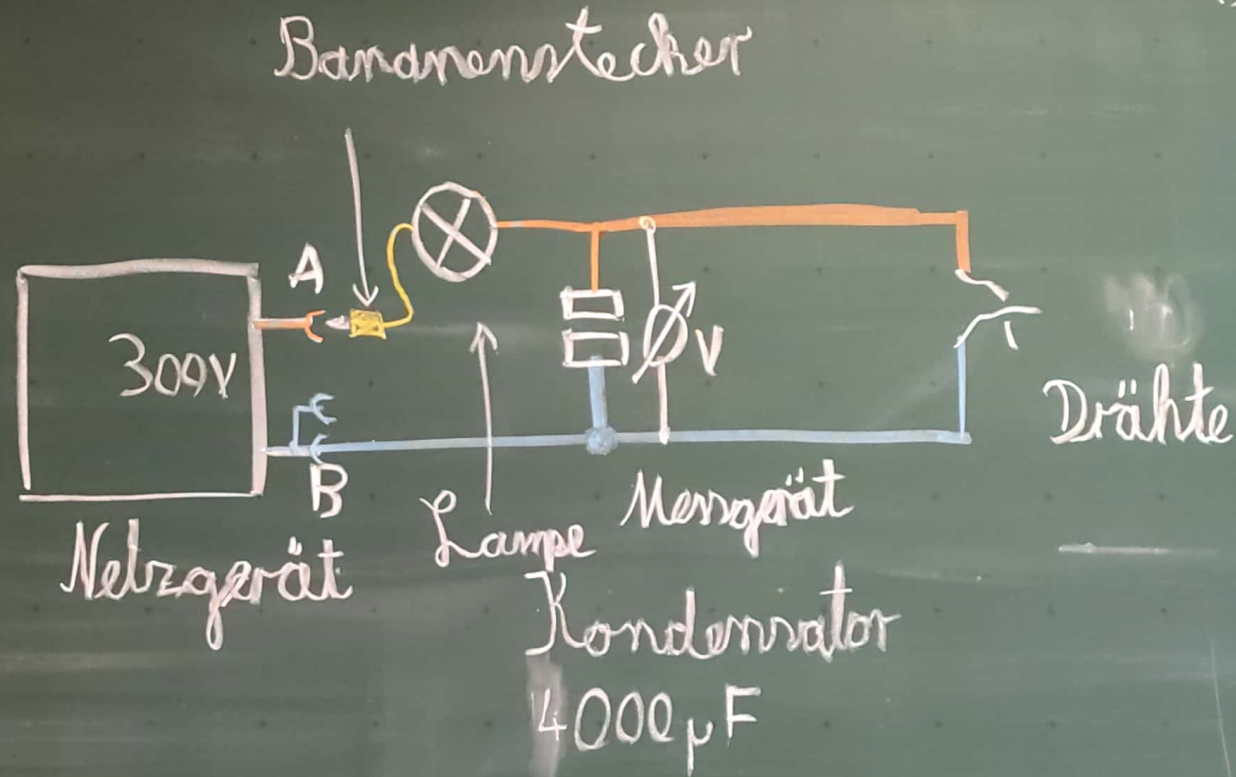 Bananenstecker
A
300V
V
Drähte
B
Messgerät
Lampe
Netzgerät
Kondensator
4000µF